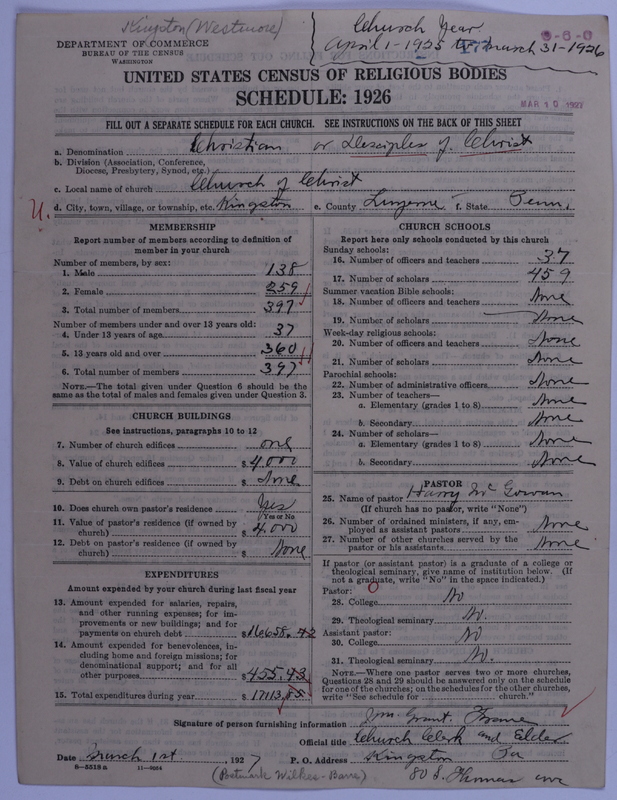 Kingston (Westmore)
Church Year
April 1-1925 to March 31-1926
DEPARTMENT OF COMMERCE
BUREAU OF THE CENSUS
WASHINGTON
UNITED STATES CENSUS OF RELIGIOUS BODIES
SCHEDULE: 1926
MAR 10 1927
FILL OUT A SEPARATE SCHEDULE FOR EACH CHURCH. SEE INSTRUCTIONS ON THE BACK OF THIS SHEET
a. Denomination Christian or Disciples of Christ
b. Division (Association, Conference, Diocese, Presbytery, Synod, etc.)
c. Local name of church Church of Christ
U. d. City, town, village, or township, etc. Kingston e. County Luzerne f. State Penn.
MEMBERSHIP
Report number of members according to definition of
member in your church
Number of members, by sex:
1. Male 138
2. Female 259
3. Total number of members 397
Number of members under and over 13 years old:
4. Under 13 years of age 37
5. 13 years old and over 360
6. Total number of members 397
NOTE.—The total given under Question 6 should be the
same as the total of males and females given under Question 3.
CHURCH BUILDINGS
See instructions, paragraphs 10 to 12
7. Number of church edifices one
8. Value of church edifices $ 4,000
9. Debt on church edifices $ None
10. Does church own pastor's residence Yes
(Yes or No
11. Value of pastor's residence (if owned by
church) $ 4,000
12. Debt on pastor's residence (if owned by
church) $ None
EXPENDITURES
Amount expended by your church during last fiscal year
13. Amount expended for salaries, repairs,
and other running expenses; for im-
provements or new buildings; and for
payments on church debt $16658.42
14. Amount expended for benevolences, in-
cluding home and foreign missions; for
denominational support; and for all
other purposes $455.43
15. Total expenditures during year $17113.85
CHURCH SCHOOLS
Report here only schools conducted by this church
Sunday schools:
16. Number of officers and teachers 37
17. Number of scholars 459
Summer vacation Bible schools:
18. Number of officers and teachers None
19. Number of scholars None
Week-day religious schools:
20. Number of officers and teachers None
21. Number of scholars None
Parochial schools:
22. Number of administrative officers None
23. Number of teachers—
a. Elementary (grades 1 to 8) None
b. Secondary None
24. Number of scholars—
a. Elementary (grades 1 to 8) None
b. Secondary None
PASTOR
25. Name of pastor Harry McGowan
(If church has no pastor, write "None")
26. Number of ordained ministers, if any, em-
ployed as assistant pastors None
27. Number of other churches served by the
pastor or his assistants None
If pastor (or assistant pastor) is a graduate of a college or
theological seminary, give name of institution below. (If
not a graduate, write "No" in the space indicated.)
Pastor:
28. College No
29. Theological seminary No.
Assistant pastor:
30. College No
31. Theological seminary No.
NOTE.—Where one pastor serves two or more churches,
Questions 28 and 29 should be answered only on the schedule
for one of the churches; on the schedules for the other churches,
write "See schedule for church."
Signature of person furnishing information Wm. Grant Frame
Official title Church Clerk and Elder
Date March 1st, 1927 P. O. Address Kingston Pa
8—5518a 11—9264
(Postmark Wilkes-Barre) 80 S. Thomas ave